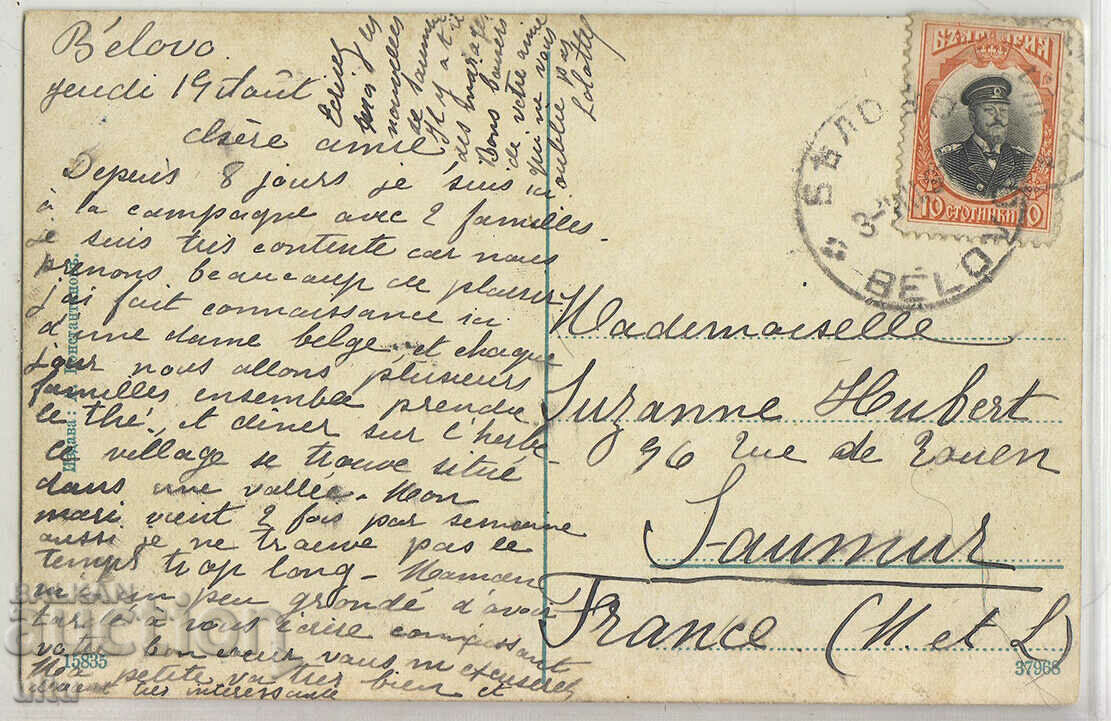 Bélovo
jeudi 19 Août
chère amie
Depuis 8 jours je suis ici
à la campagne avec 2 familles.
je suis très contente car nous
prenons beaucoup de plaisir
j'ai fait connaissance ici
d'une dame belge, et chaque
jour nous allons plusieurs
familles ensemble prendre
le thé, et diner sur l'herbe
le village se trouve situé
dans une vallée. Mon
mari vient 2 fois par semaine
aussi je ne trouve pas le
temps trop long. Maman
m'a un peu grondé d'avoir
tardé à vous écrire connaissant
votre bon cœur vous m'excuserez
Ma petite va très bien et
devient très intéressante
Ecrivez
moi les
nouvelles
de Saumur
Il y a t-il
des mariages
Bons baisers
de votre amie
qui ne vous
oublie pas
Mademoiselle
Suzanne Hubert
96 rue de Rouen
Saumur
France (M et L)
БЪЛГАРИЯ
10 СТОТИНКИ 10
БѢЛОВО
BÉLOVO
Издава: Константиновъ.
15835
37968
BALKAN
auction